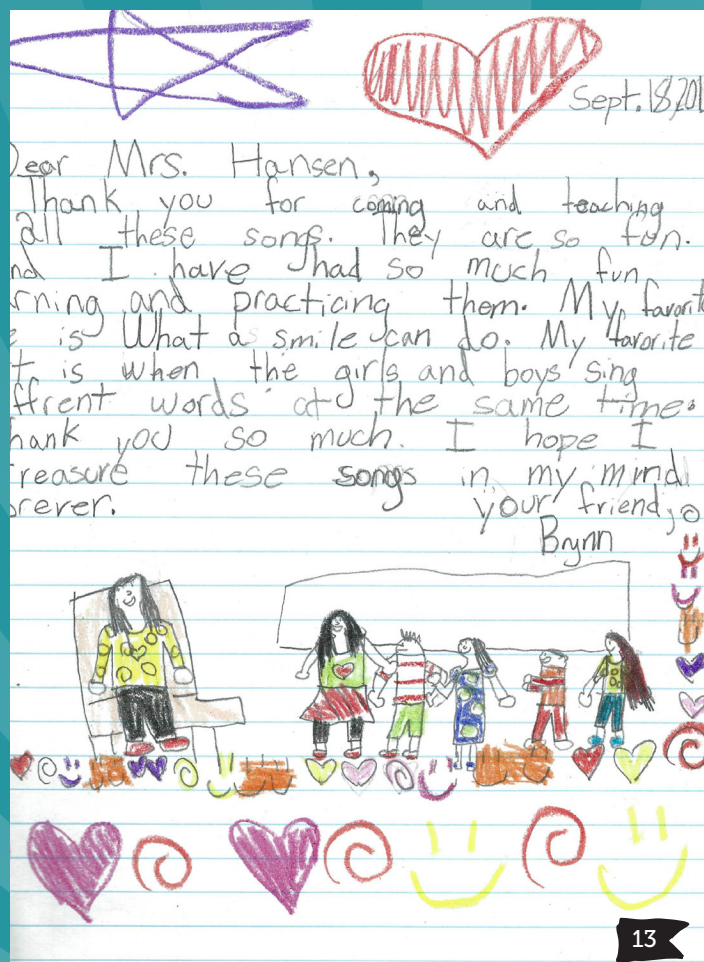 Sept. 18, 201
Dear Mrs. Hansen,
Thank you for coming and teaching
all these songs. They are so fun.
nd I have had so much fun
rning and practicing them. My favorit
e is What a smile can do. My favorite
t is when the girls and boys sing
ffrent words at the same time.
hank you so much. I hope I
reasure these songs in my mind
orever.
your friend,
Brynn
13